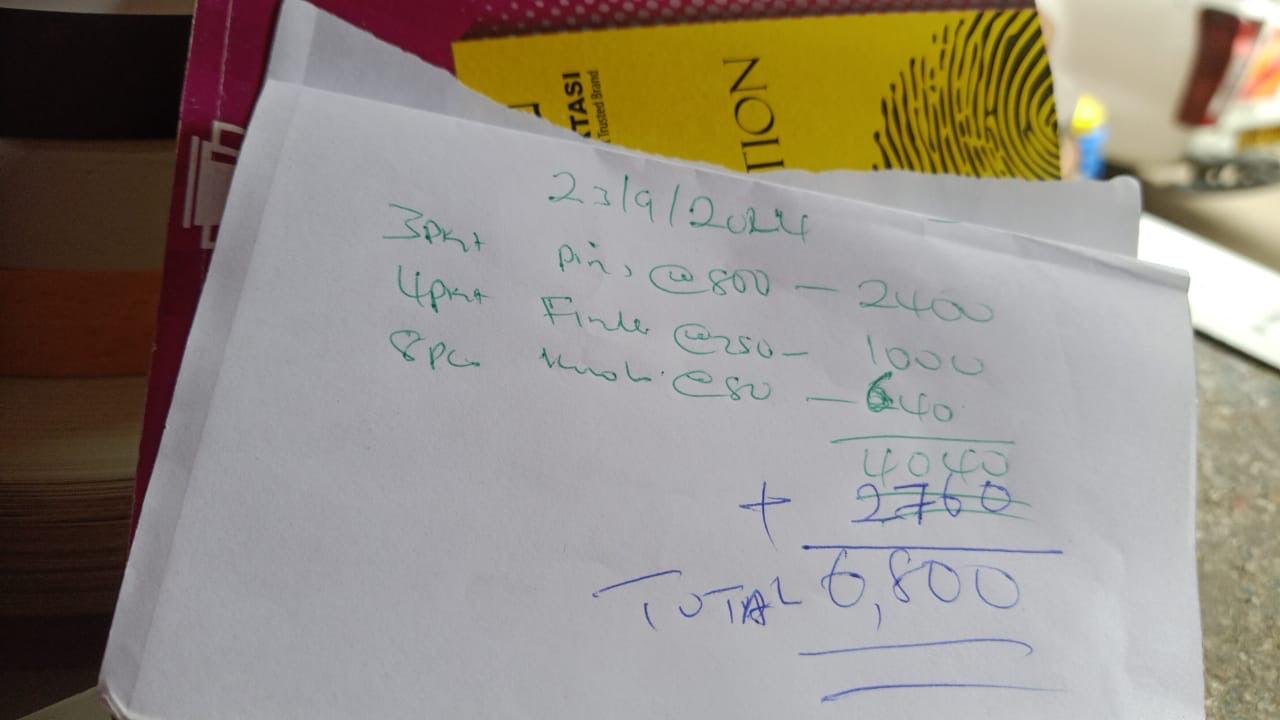 TASI
Trusted Brand
TION
23/9/2024
3pkt pins @800 — 2400
4pkt @250 — 1000
8pcs @80 — 640
4040
+ 2760
TOTAL 6,800